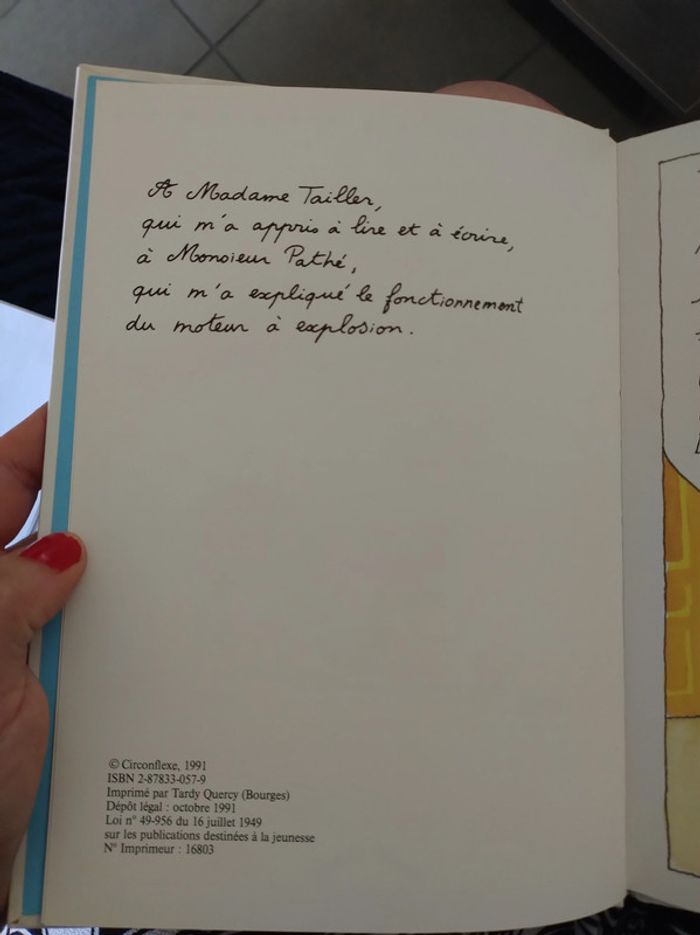 A Madame Tailler,
qui m'a appris à lire et à écrire,
à Monsieur Pathé,
qui m'a expliqué le fonctionnement
du moteur à explosion.
© Circonflexe, 1991
ISBN 2-87833-057-9
Imprimé par Tardy Quercy (Bourges)
Dépôt légal : octobre 1991
Loi n° 49-956 du 16 juillet 1949
sur les publications destinées à la jeunesse
N° Imprimeur : 16803